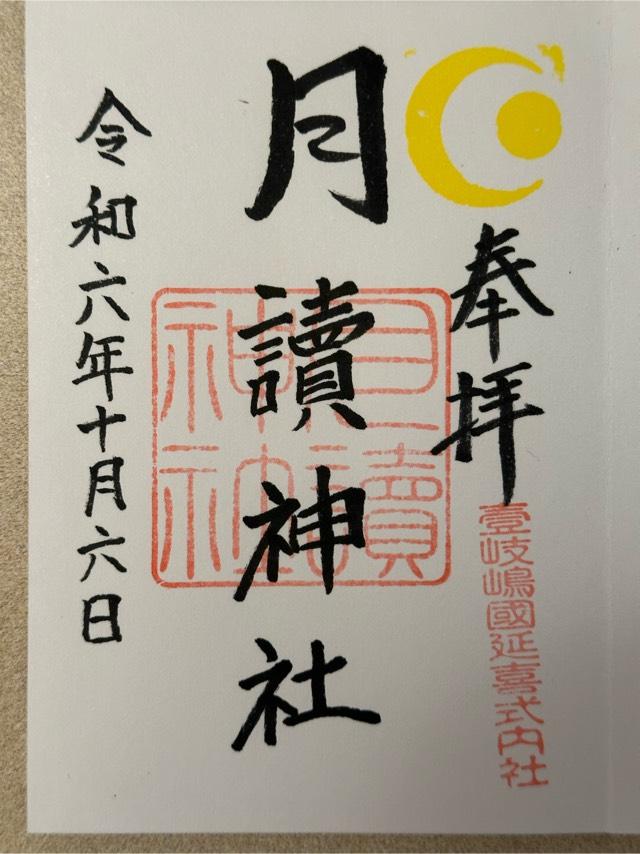 奉拝
壹岐嶋國延喜式内社
月讀神社
月讀神社
令和六年十月六日